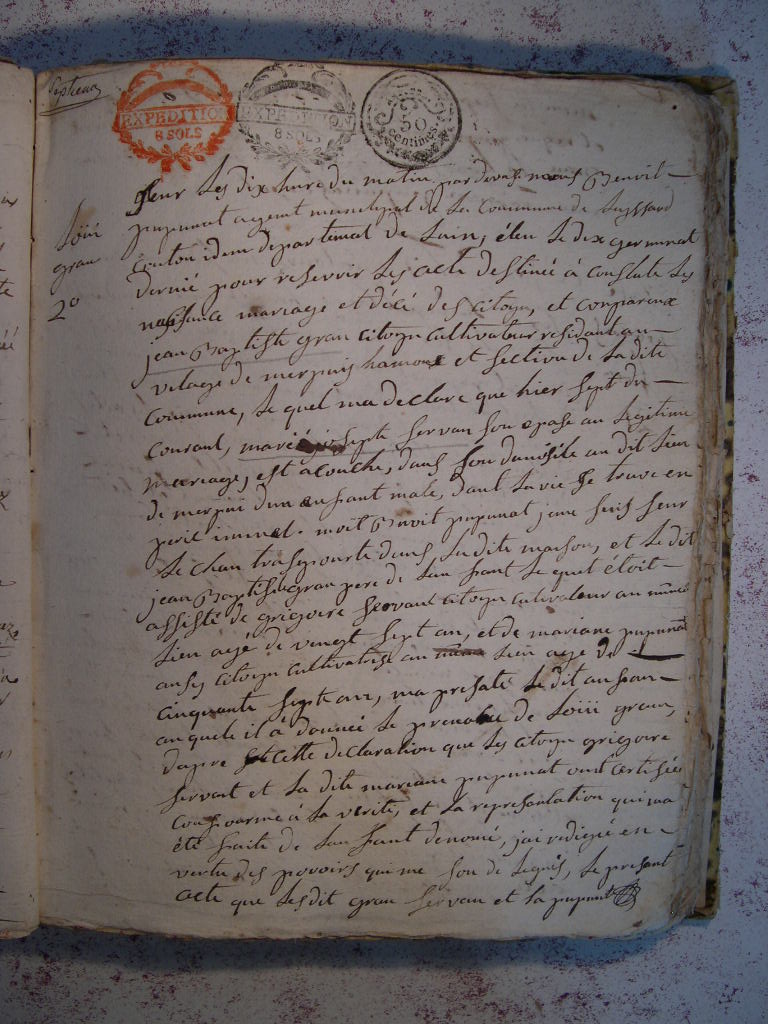 Septieme
EXPEDITION
8 SOLS
EXPEDITION
8 SOLS
50
Centimes
loüi
gran
2º
sur Les dix hure du matin par devant nous Benoit
pupunat agent municipal de La Commune de Luyssard
Canton idem departemat de Lain, éleu Le dix germinat
dernié pour reservoir Les acte destineé à constate Les
naissance mariage et décé des citoyn, et compareux
jean Baptiste gran citoyn cultivateur residant au
vilage de merpuis hamoux et section de La dite
Commune, Le quel ma declare que hier sept du
Courant, marié josepte servan son epase an Legitime
mariage, est acouche, dans son domisile au dit Lieu
de merpui dun anfant male, dant La vie se trave en
peril immet. moit Benoit pupunat jeme suis seur
Le chan trasepourte dans La dite maison, et Le dit
jean Baptiste gran pere de Lanfant Le quel étoit
assisté de grégoire servant citoyn cultivateur au mime
Lieu agé de vingt sept an, et de mariane pupunat
citoyn cultivatrise au Lieu agé de
cinquante sept an, ma presate Le dit anfant
auquele il a donneé Le prenome de Loüi gran,
dapre cette declaration que Les citoyn grégoire
servant et La dite mariane pupunat ont certifiée
confourme à La verité, et La represantation qui ma
été faite de Lanfant denomé, jai redigeé en
vertu des povoirs qui me son de Legués, Le presant
acte que Lesdit gran servan et La pupunat